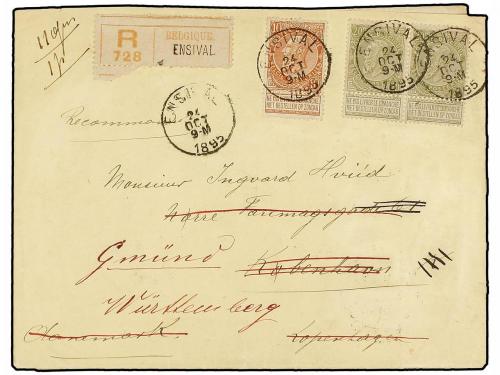 R
728
BELGIQUE.
ENSIVAL
ENSIVAL
24
OCT
9-M
1895
ENSIVAL
24
OCT
9-M
1895
24
OCT
9-M
1895
ENSIVAL
24
OCT
9-M
1895
NE PAS LIVRER LE DIMANCHE
NIET BESTELLEN OP ZONDAG
Monsieur Ingvard Hviid
Nørre Farimagsgade
Gmünd
København
Württemberg
Danemark.
Copenhagen